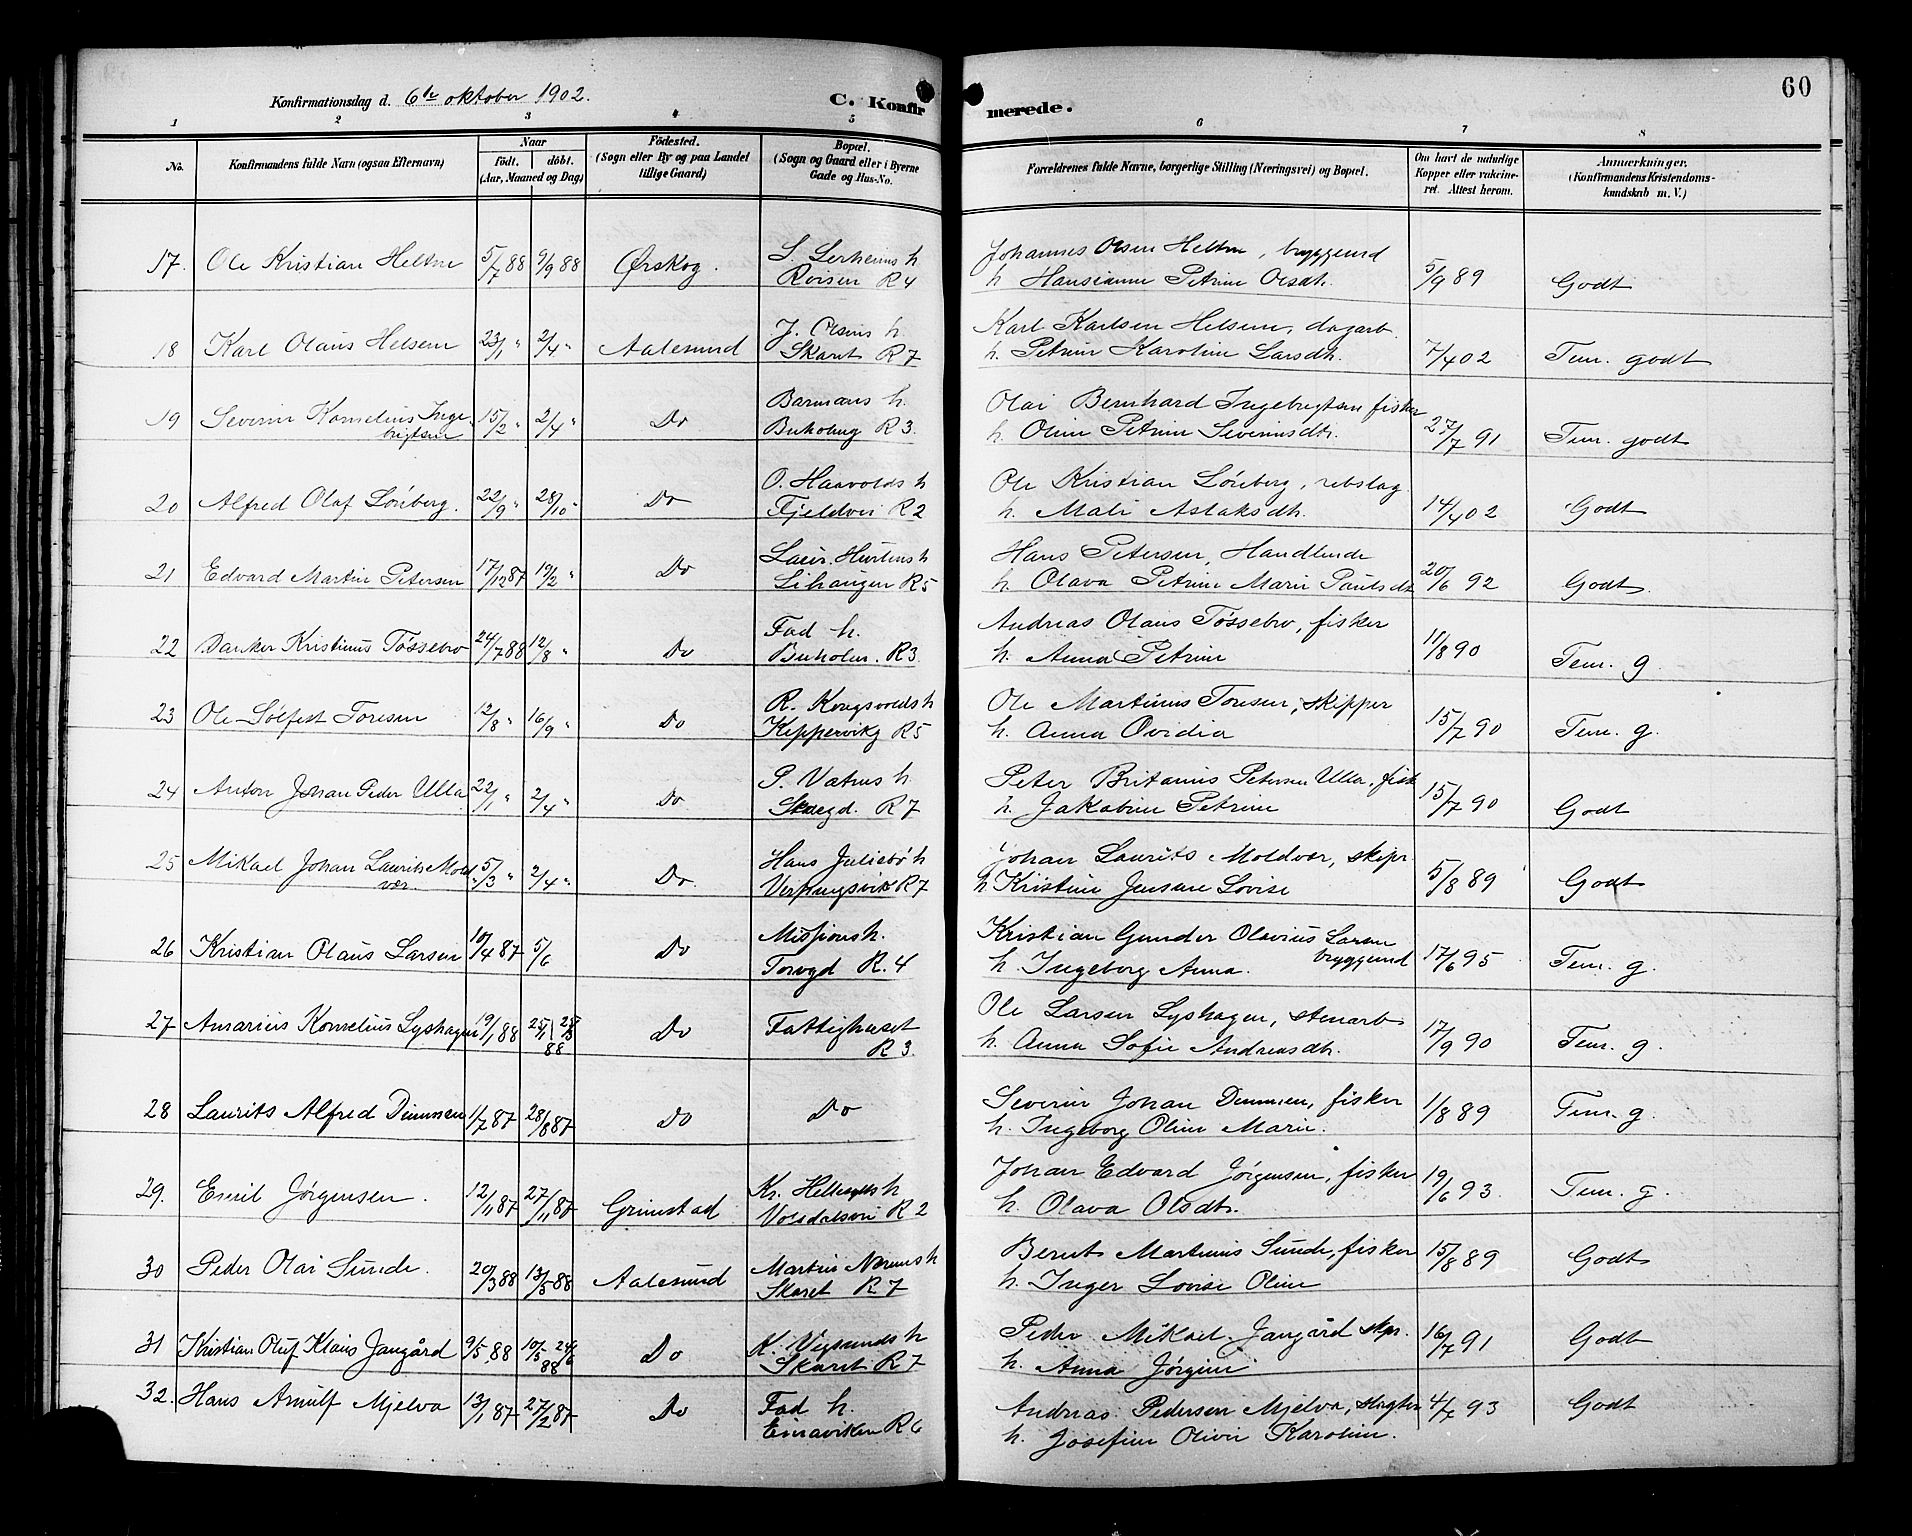 60
Konfirmationsdag d. 6te oktober 1902.
C. Konfirmerede.
1 2 3 4 5 6 7 8
No.
Konfirmandens fulde Navn (ogsaa Efternavn)
Naar
Födt. döbt.
(Aar, Maaned og Dag)
Födested.
(Sogn eller By og paa Landet
tillige Gaard)
Bopæl.
(Sogn og Gaard eller i Byerne
Gade og Hus-No.
Forældrenes fulde Navne, borgerlige Stilling (Næringsvei) og Bopæl.
Om havt de naturlige
Kopper eller vakcine-
ret. Attest herom.
Anmærkninger.
(Konfirmandens Kristendoms-
kundskab m. V.)
17. Ole Kristian Heltne 5/7 88 9/9 88 Ørskog. S. h. Johannes Olsen Heltne, bryggemd
Röisen R4 h. Hansianne Petrine Olsdt. 5/9 89 Godt
18 Karl Olaus Helsem 23/1 " 2/4 " Aalesund J. Olsens h. Karl Karlsen Helsem, dagarb.
Skaret R7 h. Petrine Karoline Larsdt. 7/4 02 Tem. godt
19 Severin Kornelius Inge- 15/2 " 2/4 " Do Barmans h. Olai Bernhard Ingebrigtsen fisker
brigtsen Buholmg R3. h. Oline Petrine Severinsdtr. 27/7 91 Tem. godt
20 Alfred Olaf Löneberg. 22/9 " 28/10 " Do O. Haavolds h Ole Kristian Löneberg, rebslag.
Fjeldvei R2 h. Mali Aslaksdt. 14/4 02 Godt
21 Edvard Martin Petersen 17/12 87 19/2 " Do Laur. h Hans Petersen, Handlende
Lihaugen R5 h. Olava Petrine Marie Paulsdt 20/6 92 Godt.
22 Danker Kristinus Tössebro 24/7 88 12/8 " Do Fad h. Andreas Olaus Tössebro, fisker
Buholm. R3 h. Anna Petrine 11/8 90 Tem. g.
23 Ole Sölfest Toresen 12/8 " 16/9 " Do R. Kongsvolds h Ole Martinus Toresen, skipper
Kippervikg R5 h. Anna Ovidia 15/7 90 Tem. g.
24 Anton Johan Peder Ulla 22/1 " 2/4 " Do P. Vatnes h. Peter Britanus Petersen Ulla, fisk
Skaregd. R7 h. Jakobine Petrine 15/7 90 Godt
25 Mikael Johan Laurits Mold- 5/3 " 2/4 " Do. Hans Juliebö h Johan Laurits Moldvær, skipr.
vær. R7 h Kristine Jensine Lovise 5/8 89 Godt
26 Kristian Olaus Larsen 10/4 87 5/6 Do Missions h. Kristian Gunder Olavius Larsen
Torvgd R.4 bryggemd h. Ingeborg Anna. 17/6 95 Tem. g.
27 Amarius Kornelius Lyshagen 19/1 88 25/1 88 Do Fattighuset Ole Larsen Lyshagen, stenarb
R3. h. Anna Sofie Andreasdt. 17/9 90 Tem. g.
28 Laurits Alfred Dimmen 1/7 87 28/8 87 Do Do Severin Johan Dimmen, fisker
h. Ingeborg Oline Marie. 1/8 89 Tem. g.
29. Emil Jörgensen. 12/1 87 27/11 87 Grimstad Kr. h Johan Edvard Jörgensen, fisker
Volsdalsvei R2 h. Olava Olsdt. 19/6 93. Tem. g.
30 Peder Olai Sunde. 20/3 88 13/5 88 Aalesund Martin h Bernt Martinus Sunde, fisker
Skaret R7 h. Inger Lovise Oline 15/8 89 Godt
31 Kristian Oluf Klaus Jangård 9/5 88 10/5 24/6 88 Do K. Vegsunds h Peder Mikael Jangård skpr.
Skaret R7 h. Anna Jörgine 16/7 91 Godt
32. Hans Arnulf Mjelva 13/1 87 27/2 87 Do Fad h. Andreas Pedersen Mjelva, slagter
Einaviken R.6 h. Josefine Olivie Karoline. 4/7 93 Godt